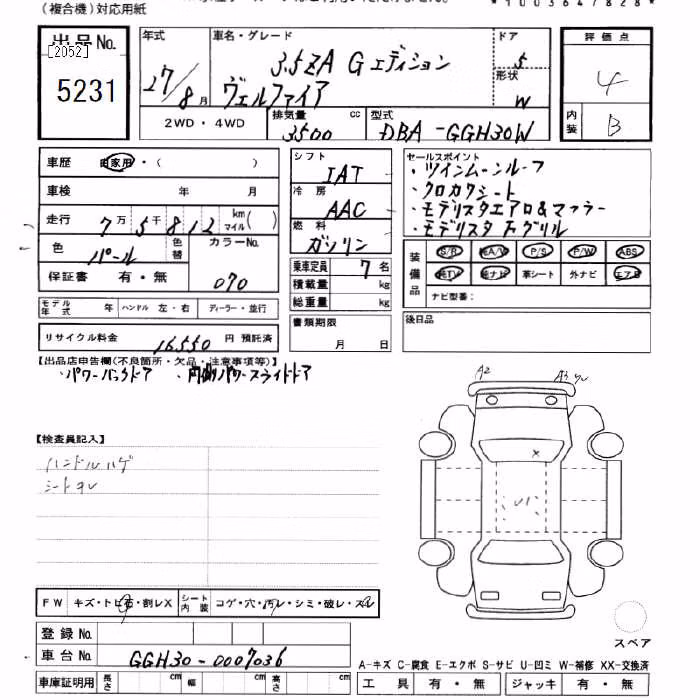 (複合機)対応用紙
*1003647828*
出品No.
[2052]
5231
年式 27/8月
車名・グレード 3.5ZA Gエディション
ヴェルファイア
ドア 5
形状 W
評価点
4
内装 B
2WD・4WD
排気量 3500 cc
型式 DBA-GGH30W
車歴 自家用・( )
車検 年 月
走行 7万5千812 km マイル( )
色 パール 色替
カラーNo. 070
保証書 有・無
シフト IAT
冷房 AAC
燃料 ガソリン
乗車定員 7名
積載量 kg
総重量 kg
書類期限 月 日
セールスポイント
・ツインムーンルーフ
・クロカワシート
・モデリスタエアロ&マフラー
・モデリスタ Fグリル
装備品
S/R 純A/W P/S P/W ABS
純TV 純ナビ 革シート 外ナビ エアB
ナビ型番:
後日品
モデル年式 年 ハンドル 左・右 ディーラー・並行
リサイクル料金 16550 円 預託済
【出品店申告欄(不良箇所・欠品・注意事項等)】
・パワーバックドア ・両側パワースライドドア
A2
A3
【検査員記入】
ハンドルハゲ
シートスレ
FW キズ・トビ石・割レX
シート内装 コゲ・穴・汚レ・シミ・破レ・スレ
登録No.
車台No. GGH30-0007036
車庫証明用 長さ cm 幅 cm 高さ cm
スペア
A-キズ C-腐食 E-エクボ S-サビ U-凹ミ W-補修 XX-交換済
工具 有・無 ジャッキ 有・無